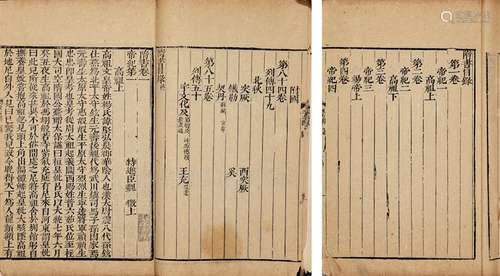 隋書目錄
第一卷
帝紀一 高祖上
第二卷
帝紀二 高祖下
第三卷
帝紀三 煬帝上
第四卷
帝紀四
附國
第八十四卷
列傳四十九
北狄
突厥 西突厥
鐵勒 奚
契丹 室韋
第八十五卷
列傳五十
宇文化及 王充
隋書卷一
帝紀第一 特進臣魏徵上
高祖上
高祖文皇帝姓楊氏諱堅弘農郡華陰人也漢太尉震八代孫鉉
仕燕爲北平太守鉉生元壽後魏代爲武川鎮司馬子孫因家焉
元壽生太原太守惠嘏嘏生平原太守烈烈生寧遠將軍禎禎生
忠忠即皇考也皇考從周太祖起義關西賜姓普六茹氏位至柱
國大司空隋國公薨贈太保諡曰桓皇妣呂氏以大統七年六月
癸丑夜生高祖於馮翊般若寺紫氣充庭有尼來自河東謂皇妣
曰此兒所從來甚異不可於俗間處之尼將高祖舍於別館躬自
撫養皇妣嘗抱高祖忽見頭上角出徧體鱗起皇妣大駭墜高祖
於地尼自外入見曰已驚我兒致令晚得天下爲人龍頷額上有